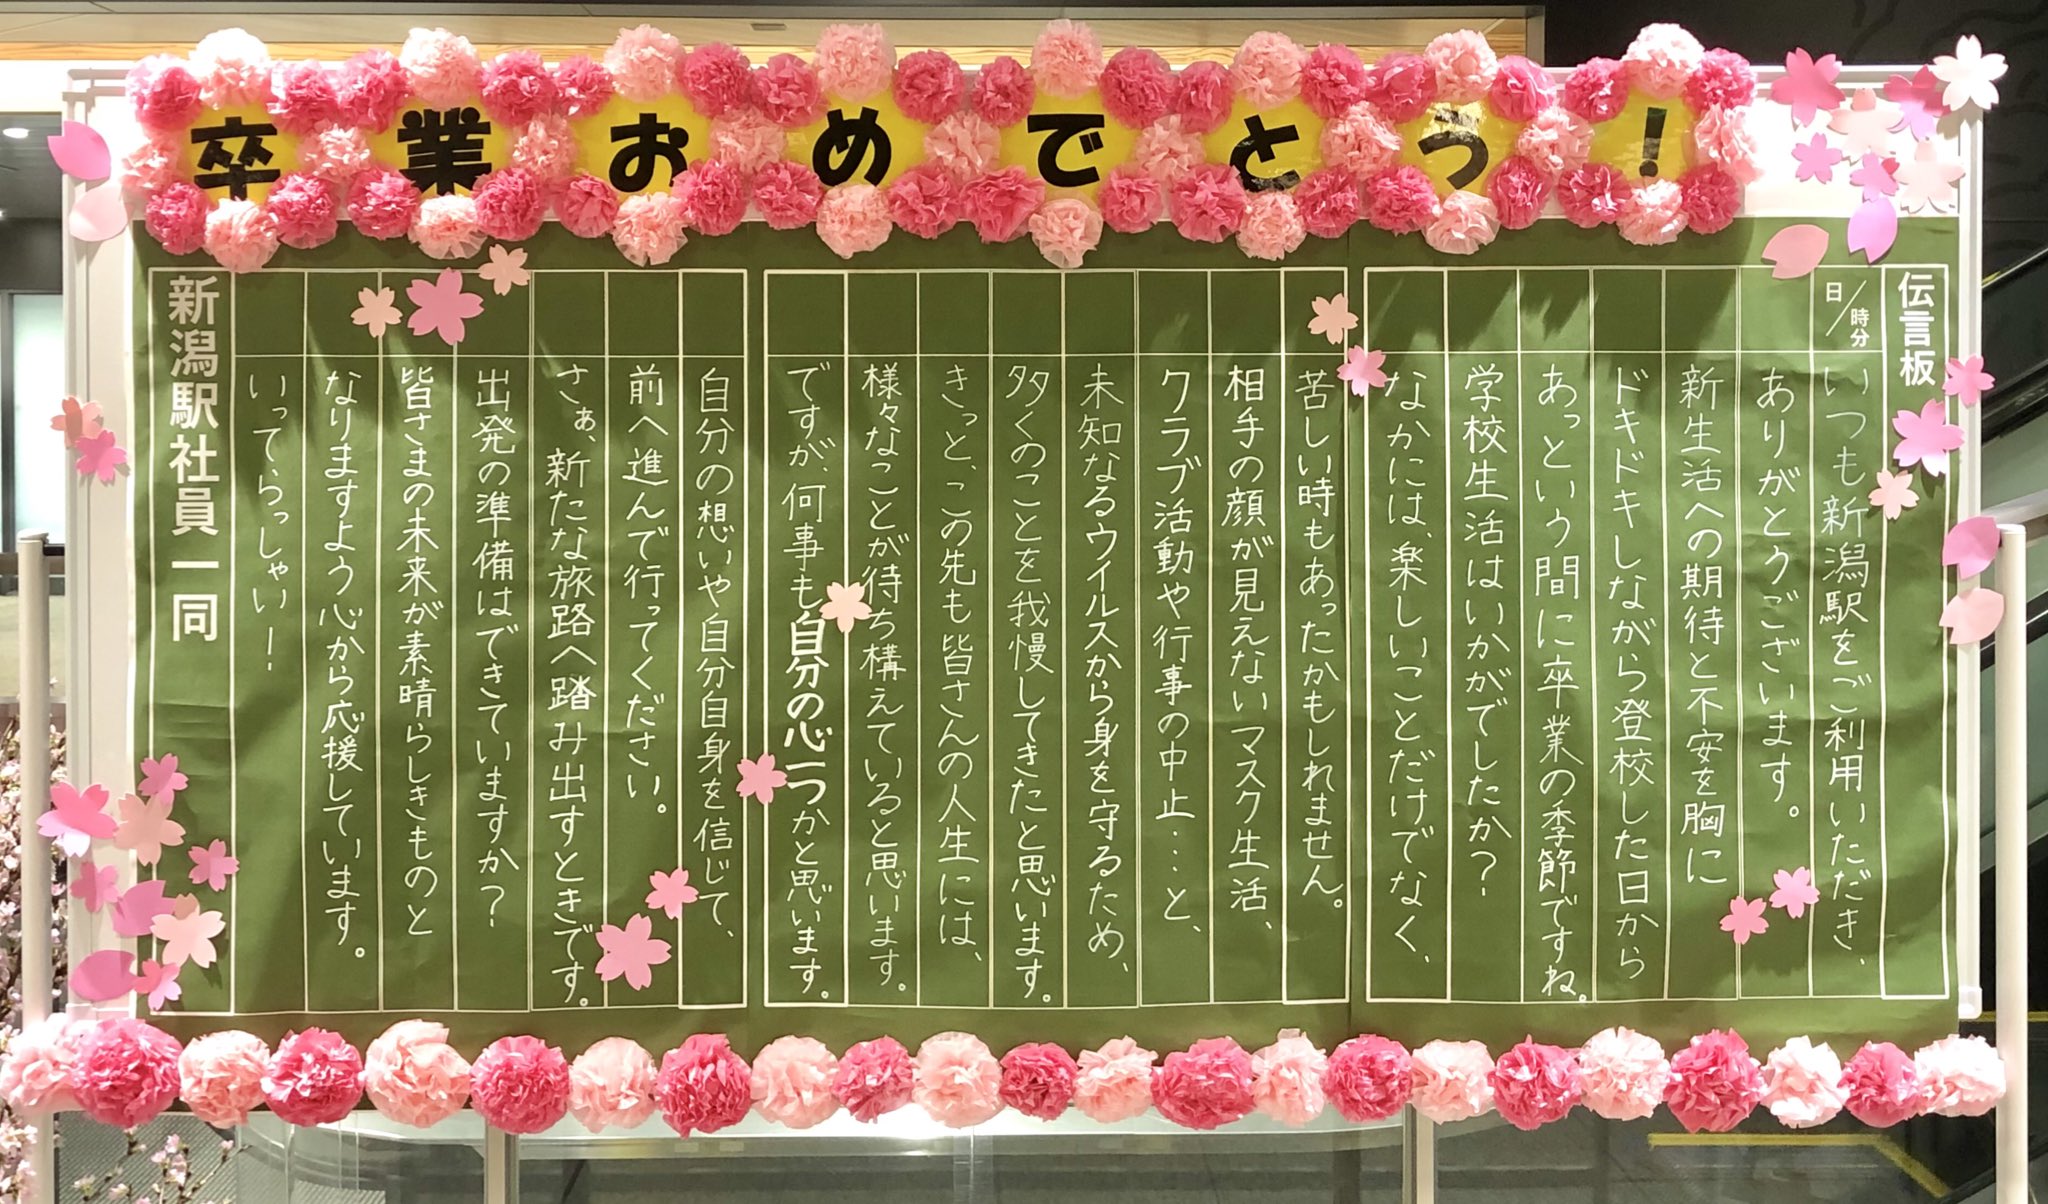 卒業おめでとう！
伝言板
日/時分
いつも新潟駅をご利用いただき、
ありがとうございます。
新生活への期待と不安を胸に
ドキドキしながら登校した日から
あっという間に卒業の季節ですね。
学校生活はいかがでしたか？
なかには、楽しいことだけでなく、
苦しい時もあったかもしれません。
相手の顔が見えないマスク生活、
クラブ活動や行事の中止…と、
未知なるウイルスから身を守るため、
多くのことを我慢してきたと思います。
きっと、この先も皆さんの人生には、
様々なことが待ち構えていると思います。
ですが、何事も自分の心一つかと思います。
自分の想いや自分自身を信じて、
前へ進んで行ってください。
さぁ、新たな旅路へ踏み出すときです。
出発の準備はできていますか？
皆さまの未来が素晴らしきものと
なりますよう心から応援しています。
いってらっしゃい！
新潟駅社員一同